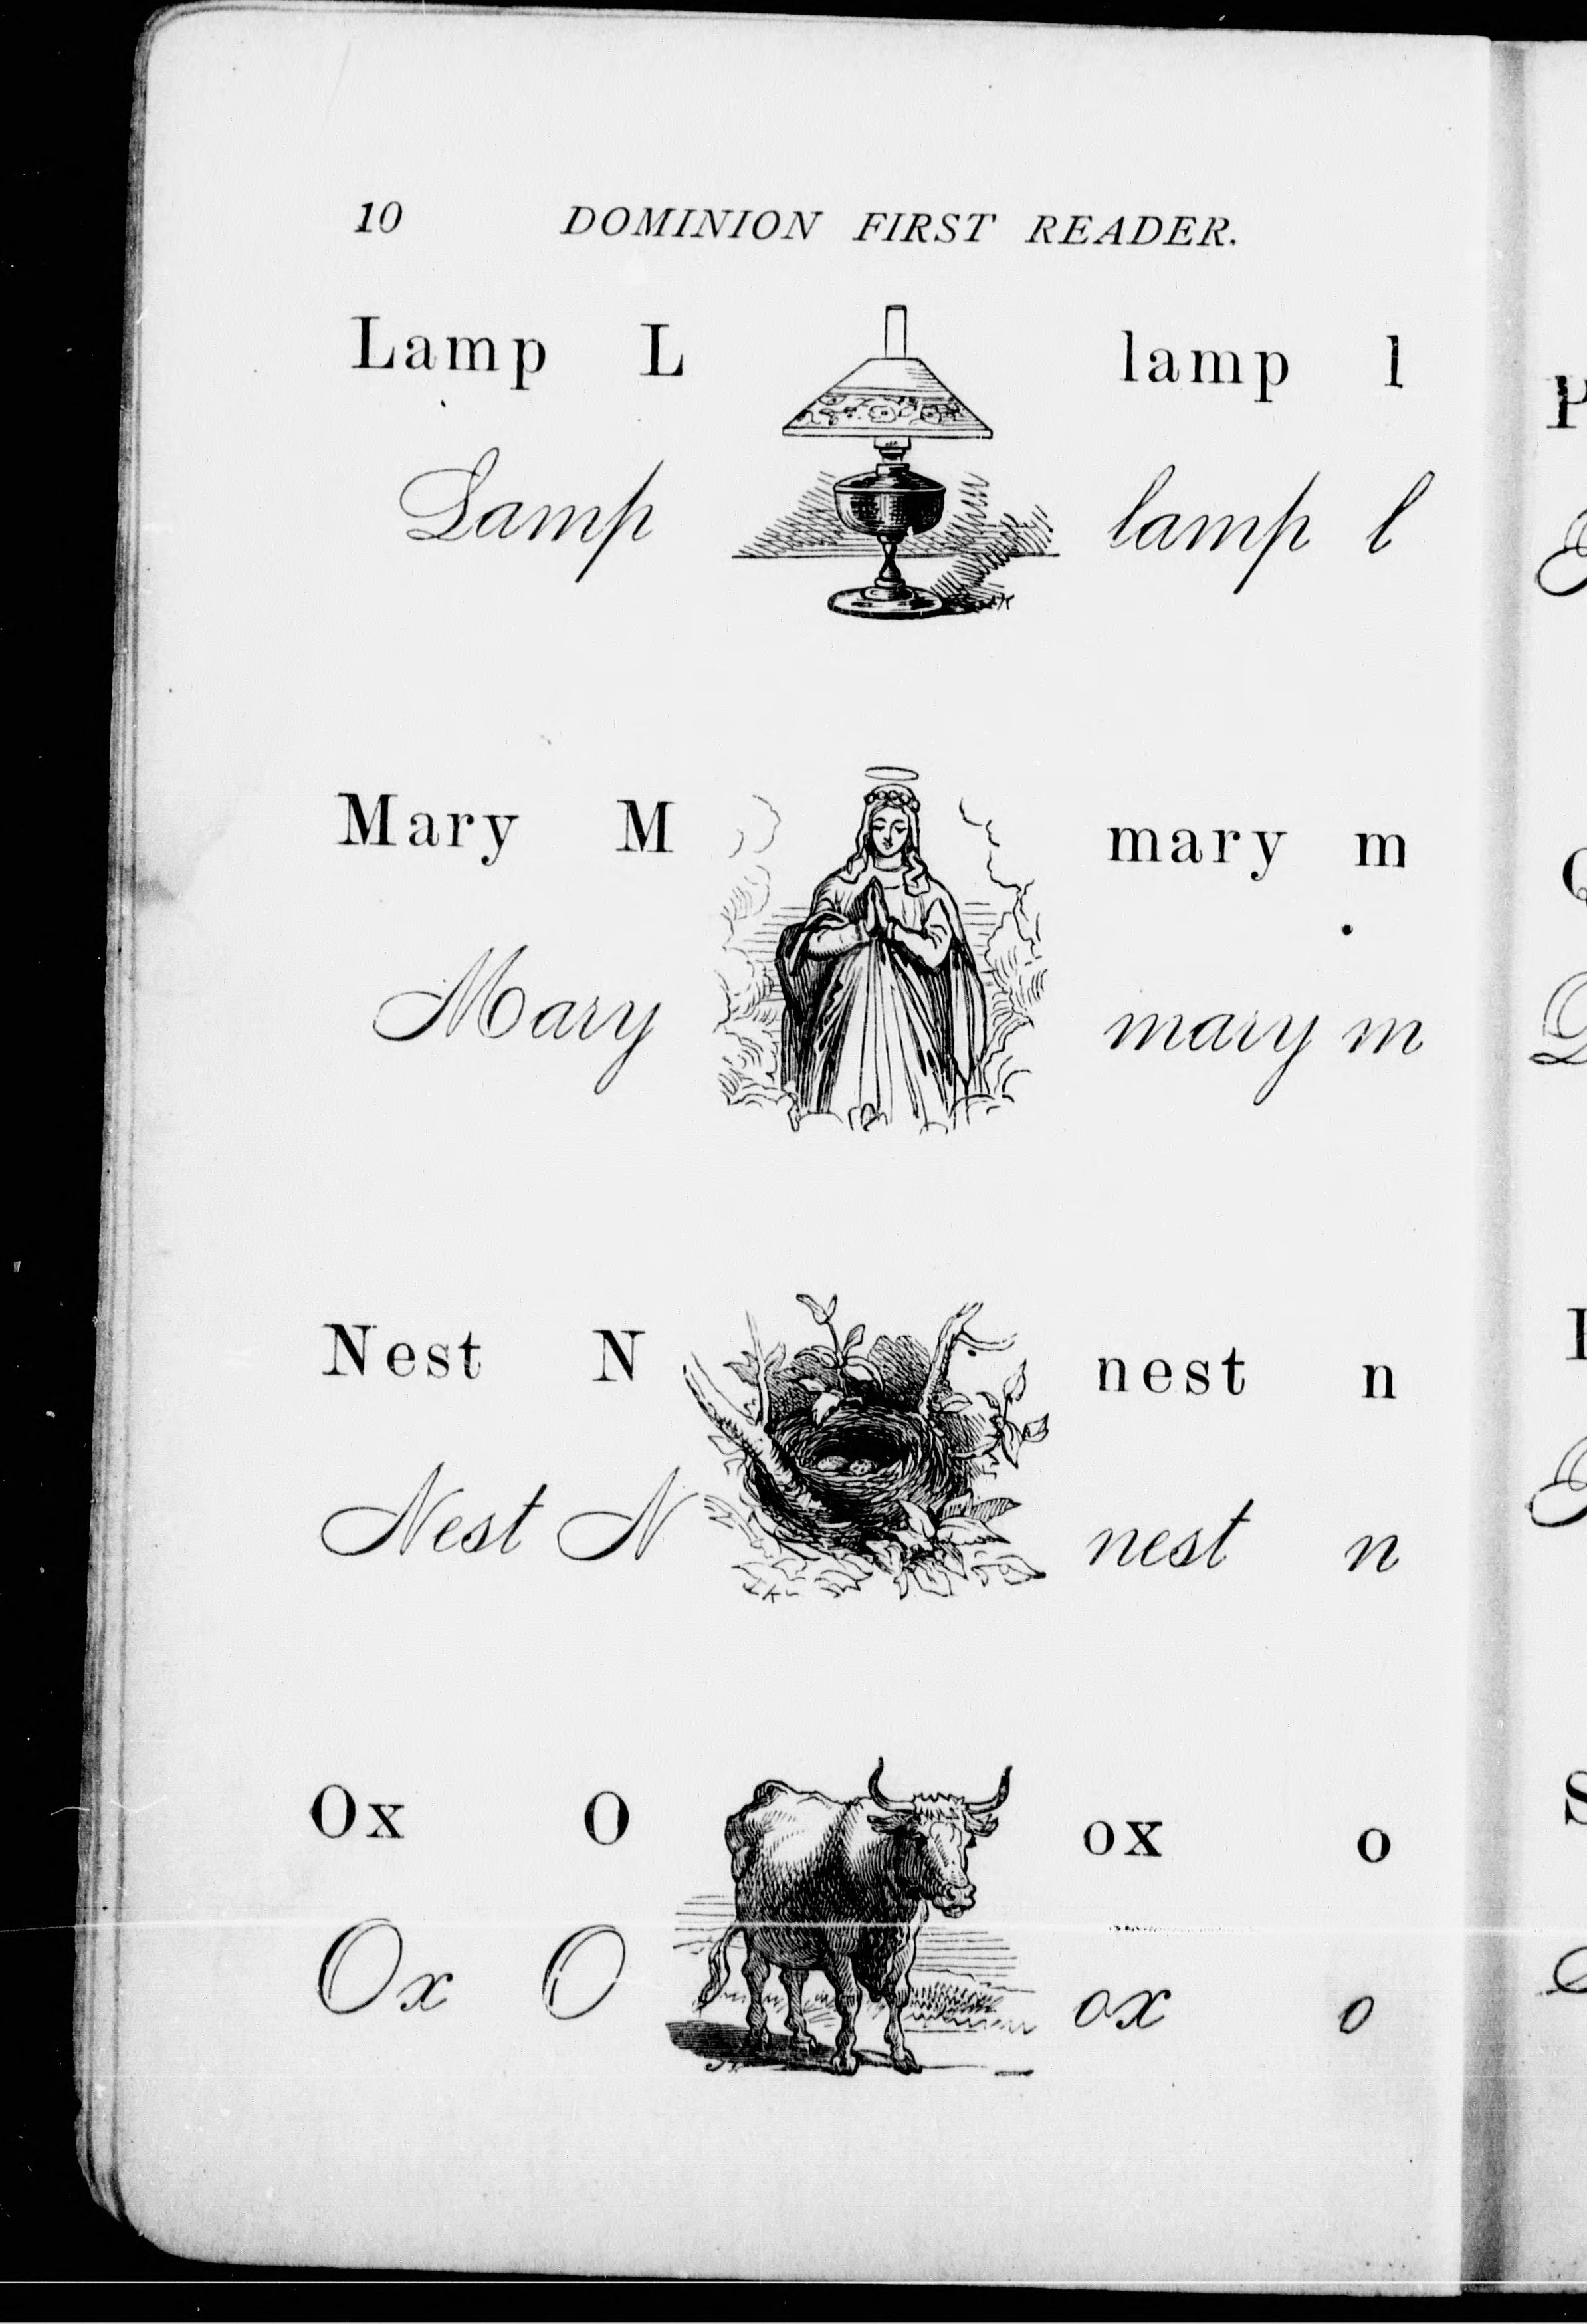 10 DOMINION FIRST READER.
Lamp L lamp l
Lamp lamp l
Mary M mary m
Mary mary m
Nest N nest n
Nest N nest n
Ox O ox o
Ox O ox o